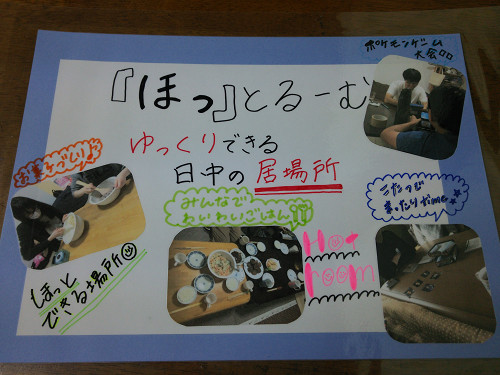 ポケモンゲーム
大会
『ほっ』とるーむ
ゆっくりできる
日中の居場所
お菓子づくり♪
みんなで
わいわいごはん
こたつで
まったりgame
Hot
room
ほっと
できる場所